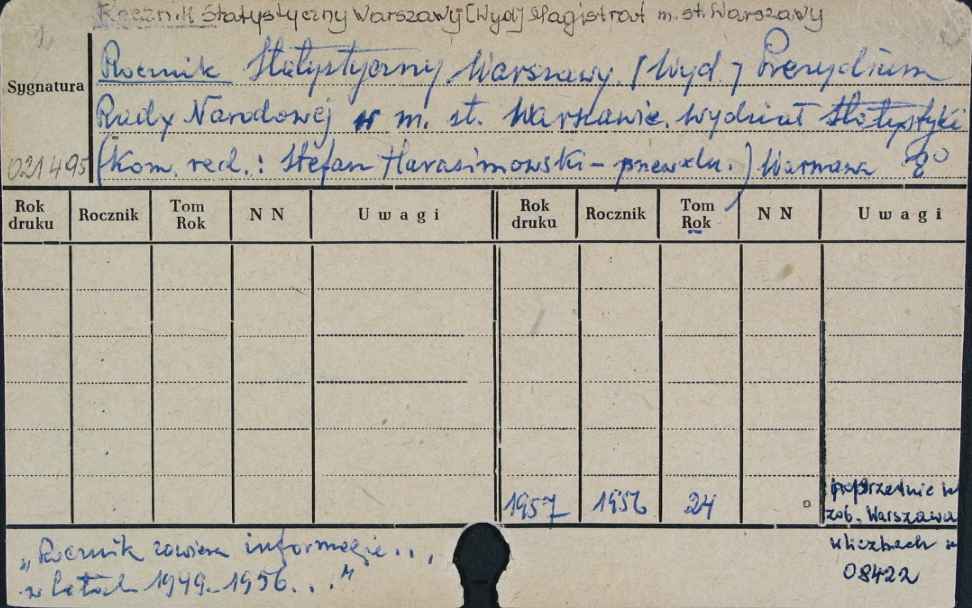 Rocznik Statystyczny Warszawy [Wyd] Magistrat m. st. Warszawy
Rocznik Statystyczny Warszawy. [Wyd] Prezydium
Sygnatura
Rady Narodowej w m. st. Warszawie. Wydział Statystyki
021495
(Kom. red.: Stefan Harasimowski - przewodn.) Warszawa 8°
Rok druku Rocznik Tom Rok N N Uwagi Rok druku Rocznik Tom Rok N N Uwagi
1957 1956 24
poprzednie
zob. Warszawa
w liczbach
08422
"Rocznik zawiera informacje...,
w latach 1949-1956..."